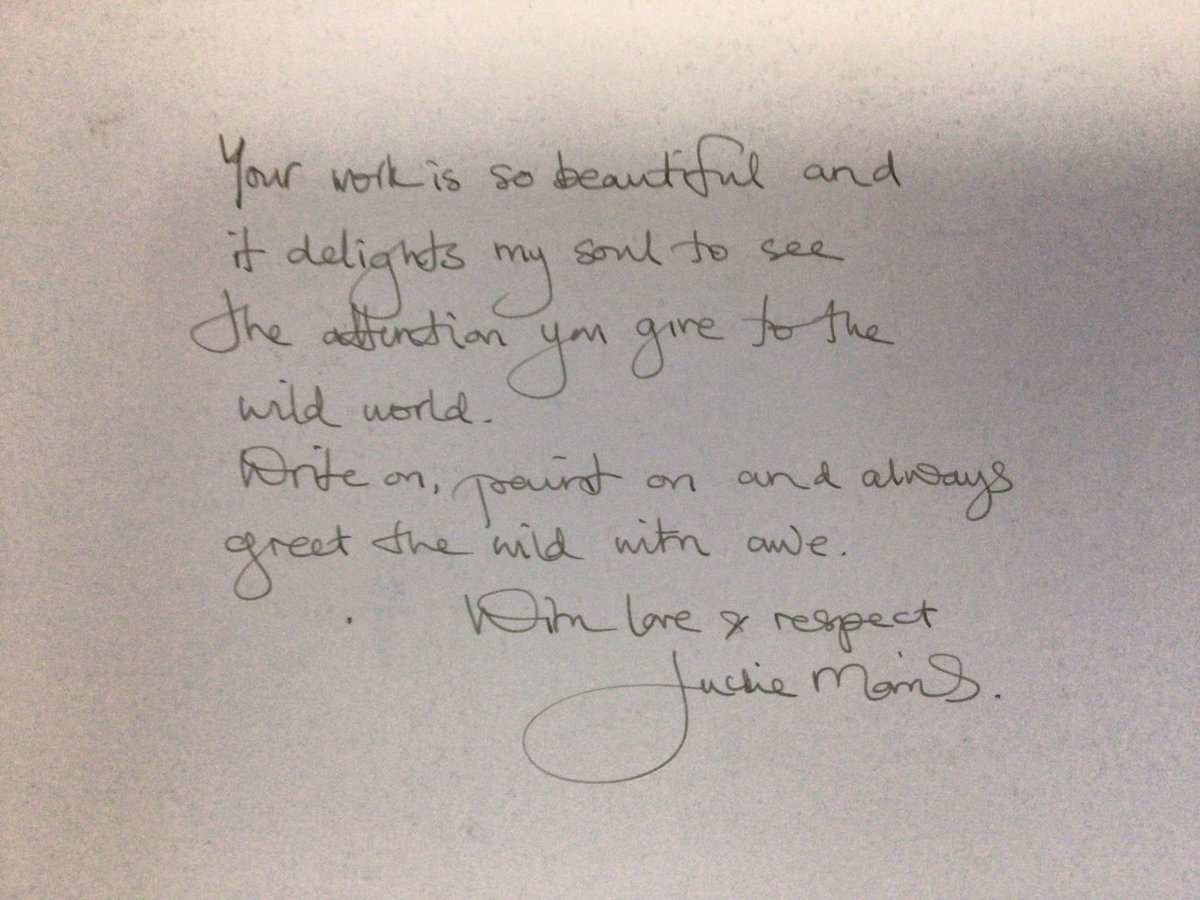 Your work is so beautiful and
it delights my soul to see
the attention you give to the
wild world.
Write on, paint on and always
greet the wild with awe.
With love & respect
Jackie Morris.